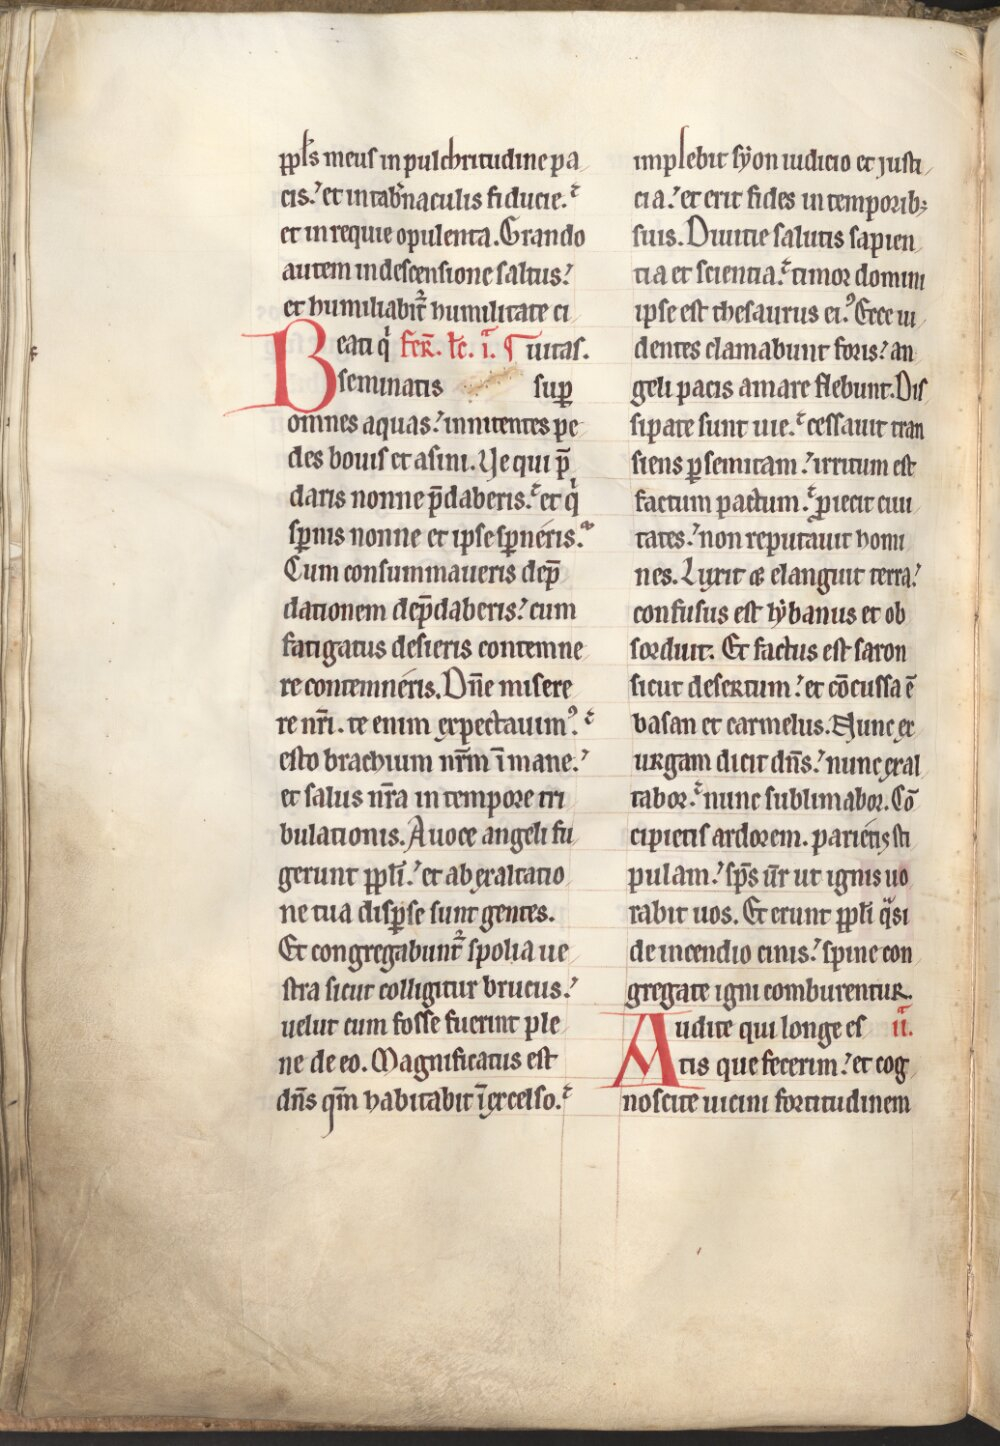 pp̄ls meus in pulchritudine pa
cis. et in tab̄naculis fiducie.
et in requie opulenta. Grando
autem in descensione saltus.
et humiliabit᷑ humilitate ci
Beati qͥ fer̄. lc̄. i.ͣ ¶ uitas.
seminatis sup̄
omnes aquas. innitentes pe
des bouis et asini. Ve qui p̄
daris nonne p̄daberis. et qͥ
sꝑnis nonne et ipse sꝑneris.
Cum consummaueris dep̄
dationem dep̄daberis. cum
fatigatus desieris contemne
re contemneris. Dn̄e misere
re nr̄i. te enim expectauimꝰ.
esto brachium nr̄m ī mane.
et salus nr̄a in tempore tri
bulationis. A uoce angeli fu
gerunt pp̄li. et ab exaltatio
ne tua disꝑse sunt gentes.
Et congregabunt᷑ spolia ue
stra sicut colligitur brucus.
uelut cum fosse fuerint ple
ne de eo. Magnificatus est
dn̄s qm̄ habitabit ī excelso.
implebit syon iudicio et justi
cia. et erit fides in temporibꝫ
suis. Diuitie salutis sapien
tia et scientia. timor domini
ipse est thesaurus eiꝰ. Ecce ui
dentes clamabunt foris. an
geli pacis amare flebunt. Dis
sipate sunt uie. cessauit tran
siens ꝑ semitam. irritum est
factum pactum. ꝓiecit ciui
tates. non reputauit homi
nes. Luxit et elanguit terra.
confusus est lybanus et ob
sorduit. Et factus est saron
sicut desertum. et cōcussa ē
basan et carmelus. Nunc ex
urgam dicit dn̄s. nunc exal
tabor. nunc sublimabor. Cō
cipietis ardorem. parietis sti
pulam. sp̄s ur̄ ut ignis uo
rabit uos. Et erunt pp̄li qͣsi
de incendio cinis. spine con
gregate igni comburentur.
Audite qui longe es ii.ͣ
tis que fecerim. et cog
noscite uicini fortitudinem